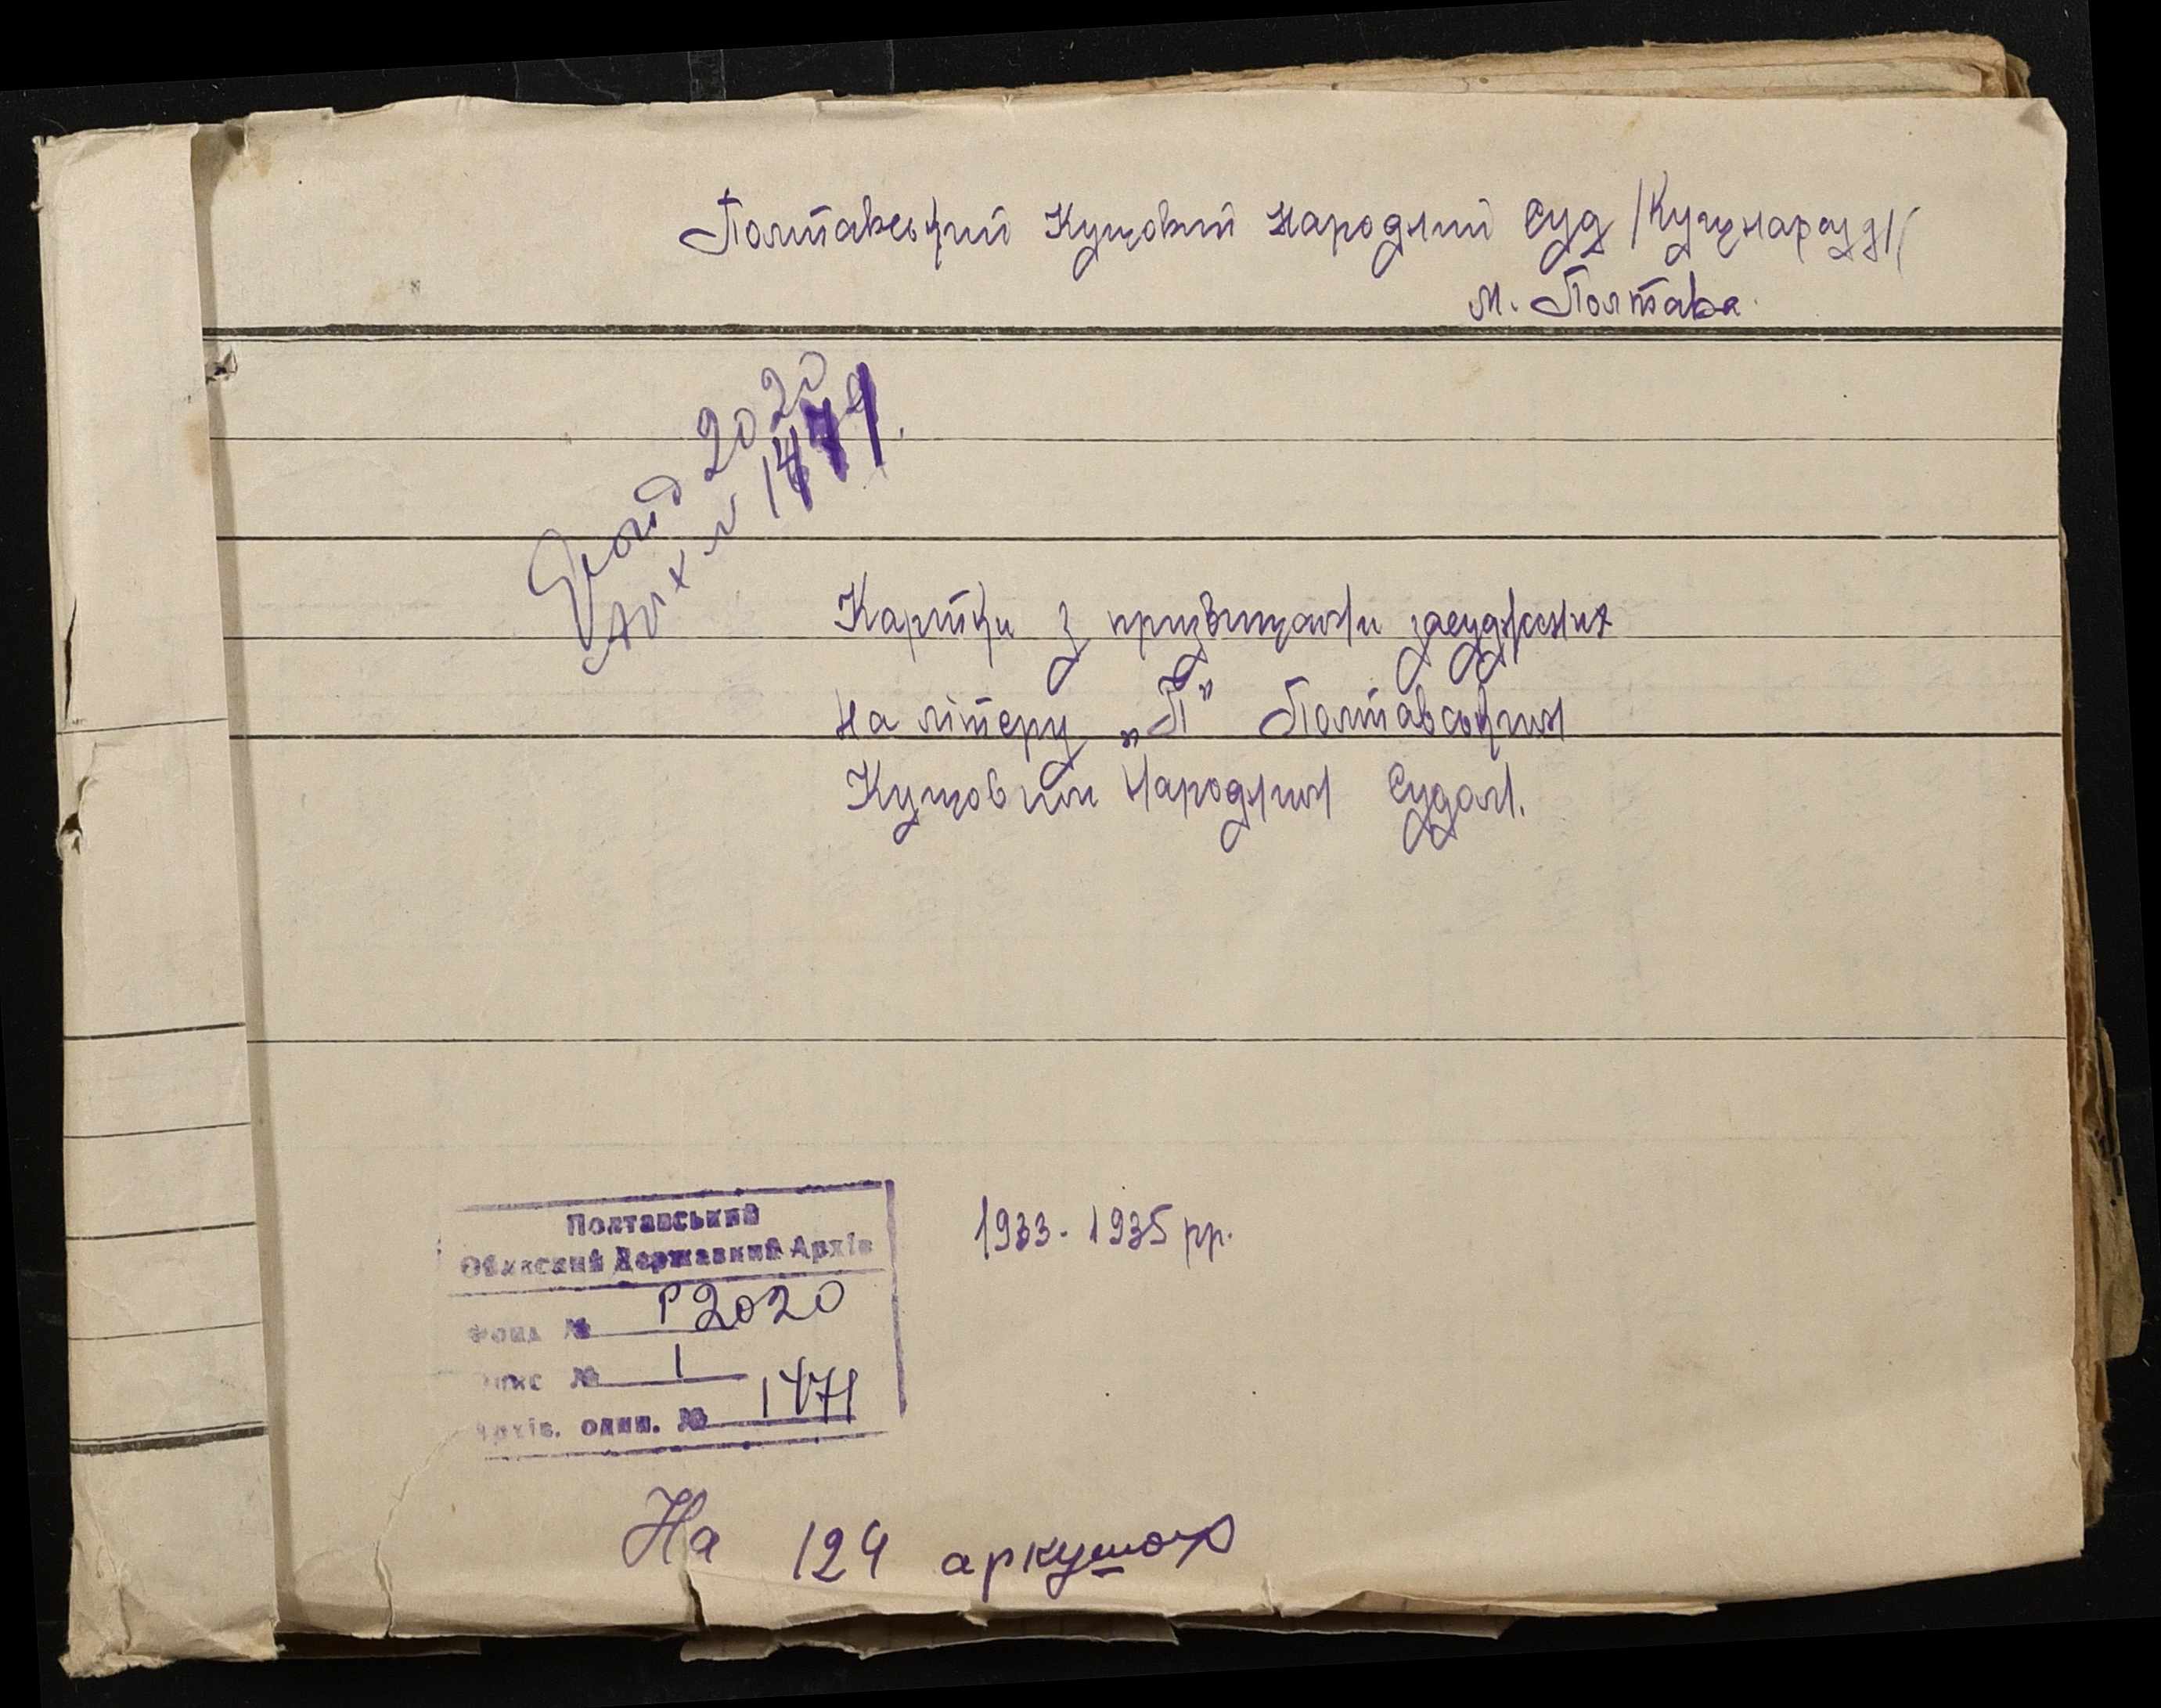 Полтавський Кущовий народний суд /Кущнарсуд/
м. Полтава.
Фонд 2020
Арх № 1471.
Картки з призвищами засуджених
на літеру „П" Полтавським
Кущовим Народним Судом.
1933-1935 рр.
Полтавський
Обласний Державний Архів
Фонд № Р2020
Опис № 1
Архів. один. № 1471
На 124 аркушах